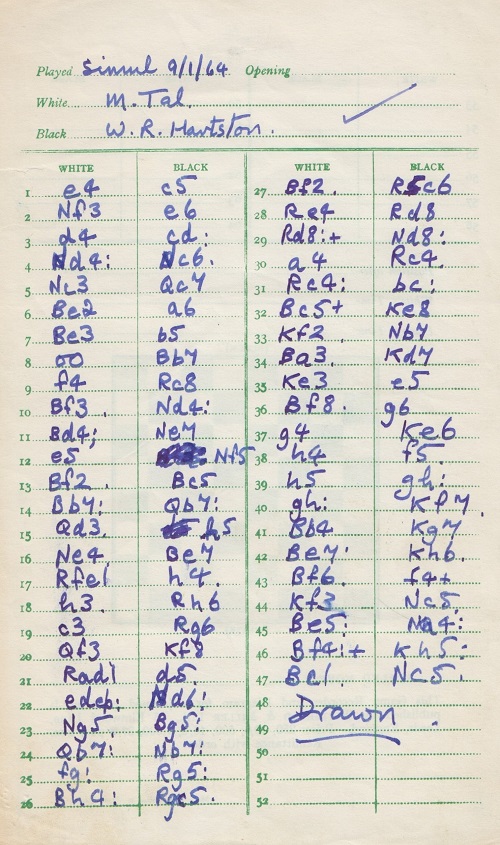 Played Simul 9/1/64 Opening
White M. Tal.
Black W. R. Hartston.
WHITE BLACK
1 e4 c5
2 Nf3 e6
3 d4 cd:
4 Nd4: Nc6.
5 Nc3 Qc7
6 Be2 a6
7 Be3 b5
8 oo Bb7
9 f4 Rc8
10 Bf3. Nd4:
11 Bd4: Ne7
12 e5 Nf5
13 Bf2. Bc5
14 Bb7: Qb7:
15 Qd3. h5
16 Ne4 Be7
17 Rfe1 h4.
18 h3. Rh6
19 c3 Rg6
20 Qf3 Kf8
21 Rad1 d5.
22 edep: Nd6:
23 Ng5. Bg5:
24 Qb7: Nb7:
25 fg: Rg5:
26 Bh4: Rgc5.
WHITE BLACK
27 Bf2. R5c6
28 Re4 Rd8
29 Rd8:+ Nd8:
30 a4 Rc4.
31 Rc4: bc:
32 Bc5+ Ke8
33 Kf2. Nb7
34 Ba3. Kd7
35 Ke3 e5
36 Bf8. g6
37 g4 Ke6
38 h4 f5.
39 h5 gh:
40 gh: Kf7.
41 Bb4 Kg7
42 Be7 Kh6.
43 Bf6. f4+
44 Kf3 Nc5.
45 Be5: Na4:
46 Bf4:+ Kh5:
47 Bc1. Nc5.
48 Drawn.
49
50
51
52